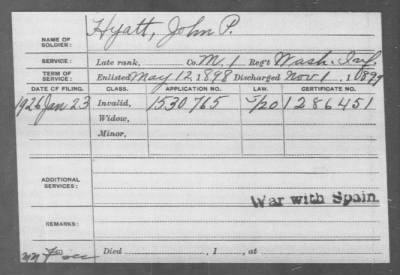 NAME OF SOLDIER: Hyatt, John P.
SERVICE: Late rank, Co. M. 1 Reg't Wash. Inf.
TERM OF SERVICE: Enlisted May 12, 1898 Discharged Nov 1, 1899
DATE OF FILING. CLASS. APPLICATION NO. LAW. CERTIFICATE NO.
1926 Jan 23 Invalid, 1530765 5/20 1286451
Widow,
Minor,
ADDITIONAL SERVICES:
War with Spain
REMARKS:
Died , 1 , at